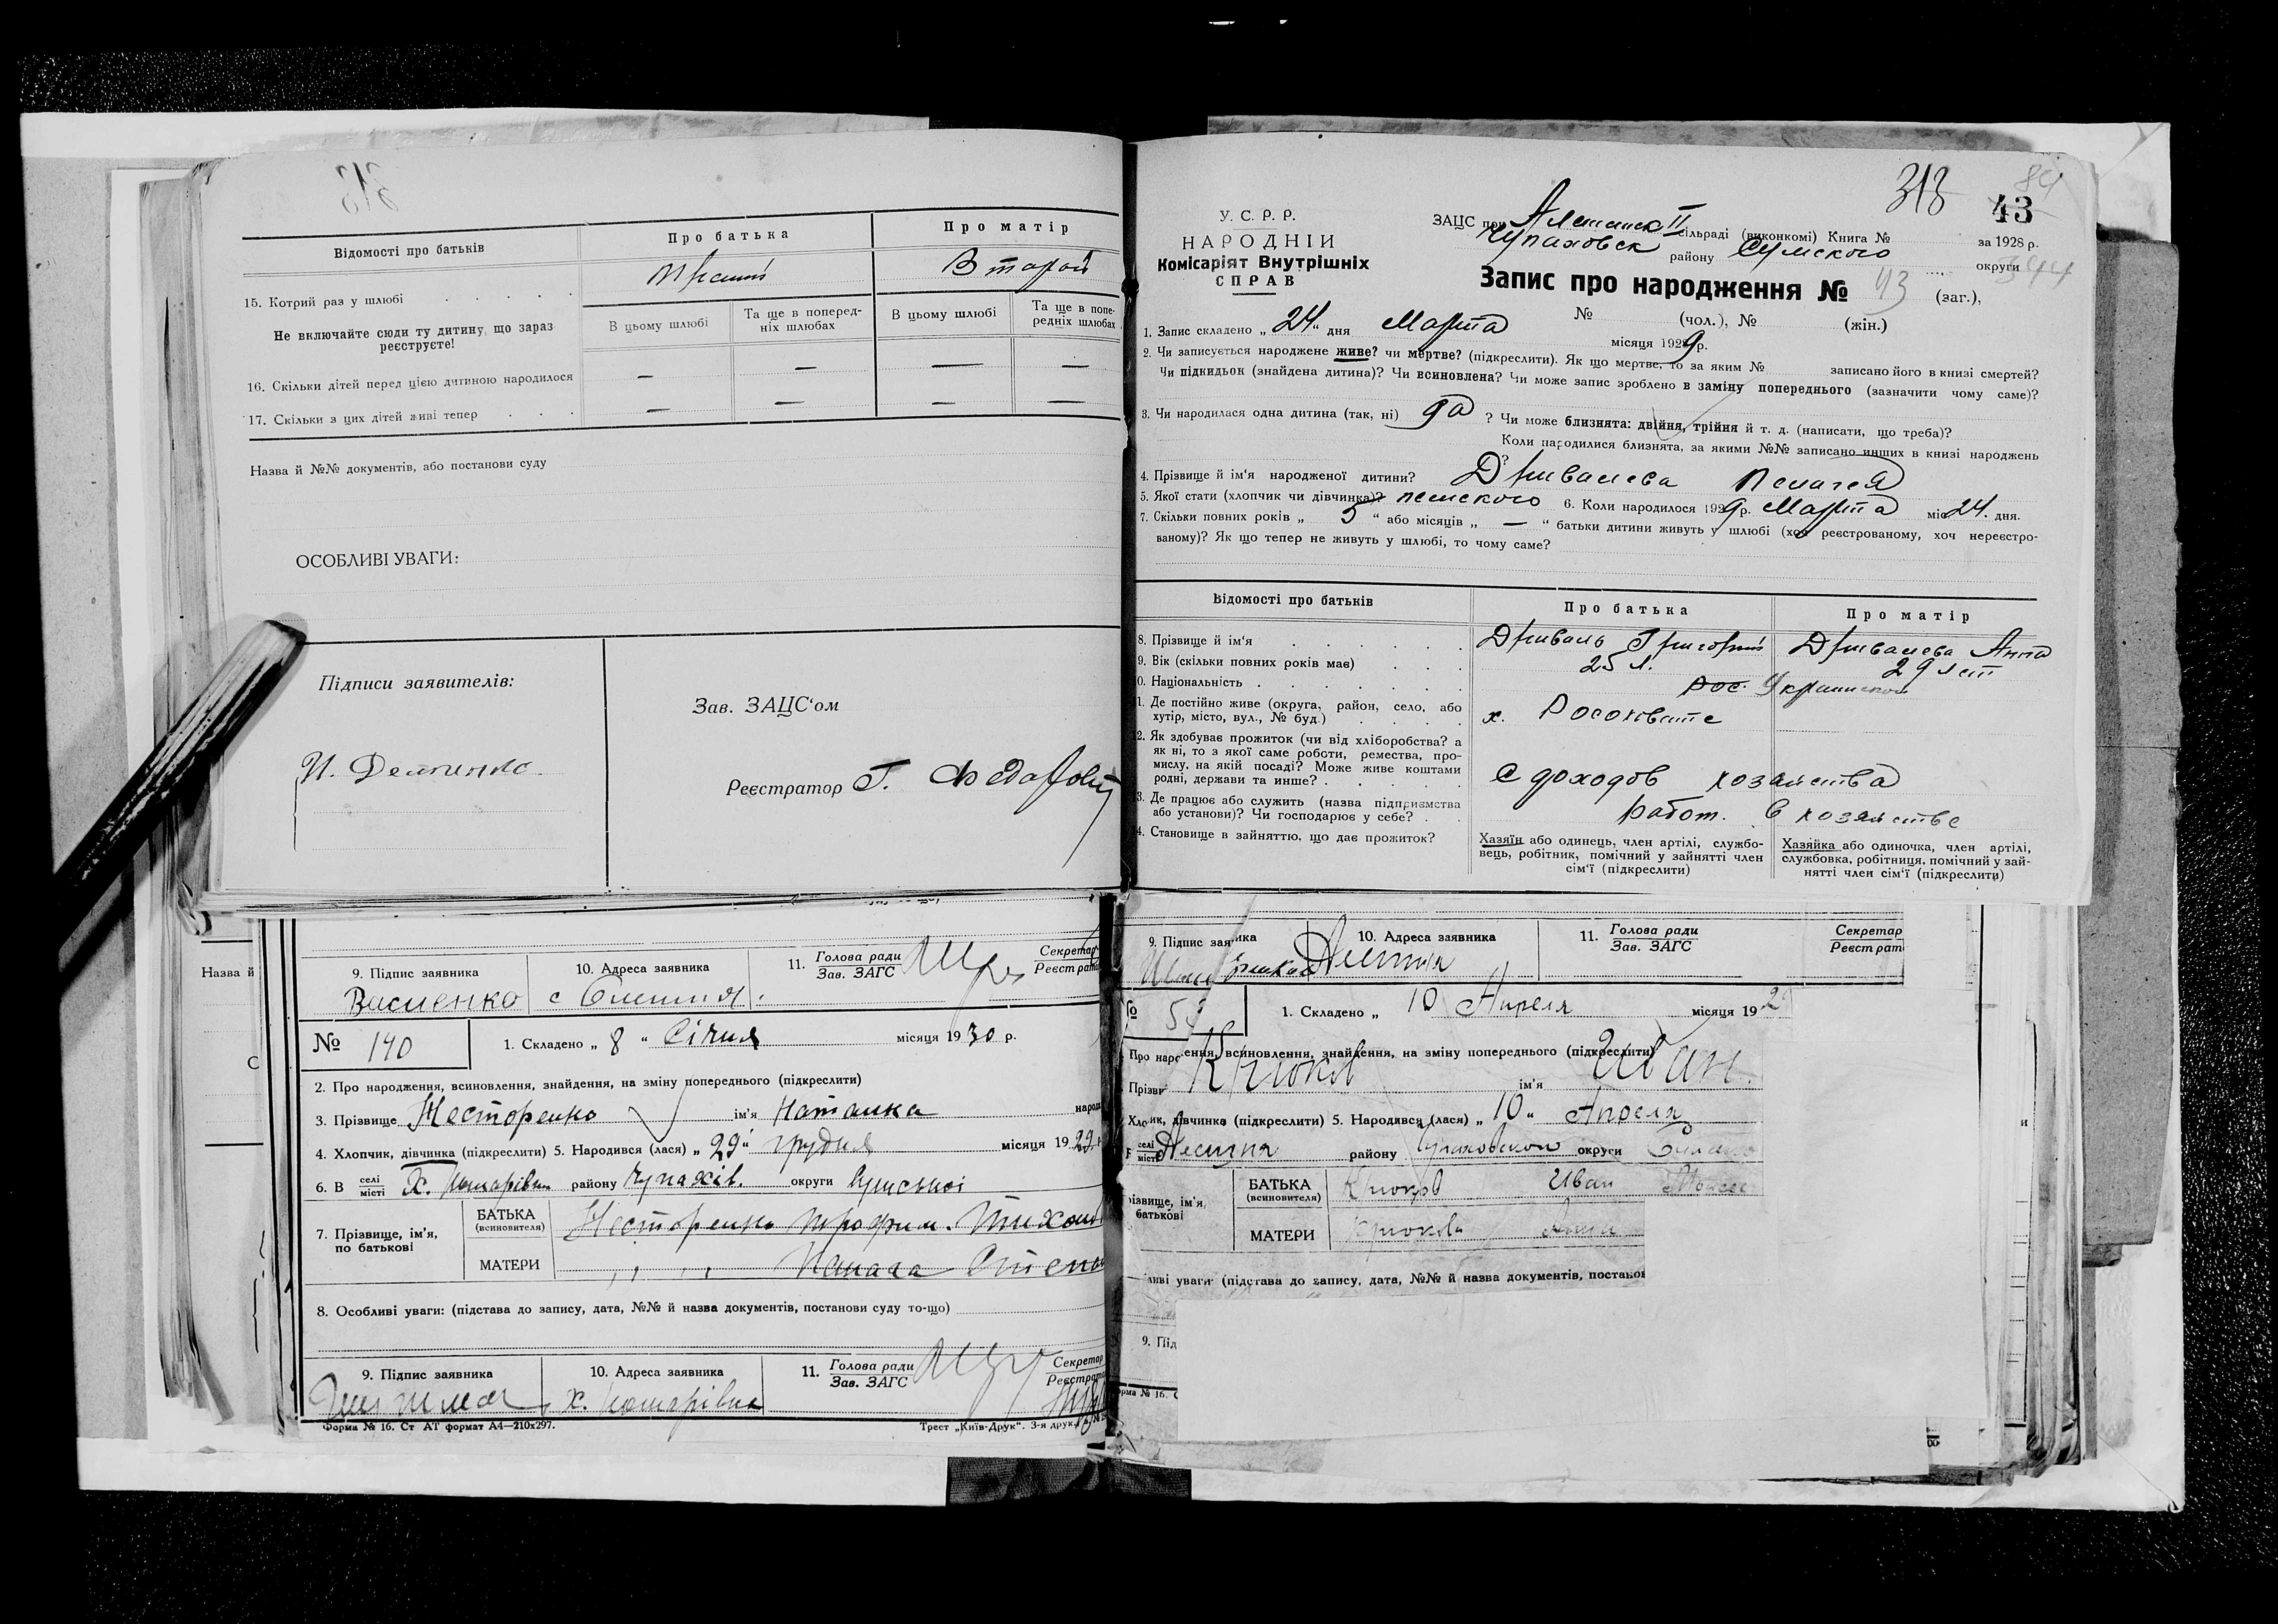 Відомості про батьків
Про батька
Про матір
15. Котрий раз у шлюбі
Второй
Не включайте сюди ту дитину, що зараз
реєструєте!
В цьому шлюбі
Та ще в поперед-
ніх шлюбах
В цьому шлюбі
Та ще в попе-
редніх шлюбах
16. Скільки дітей перед цією дитиною народилося
— — — —
17. Скільки з цих дітей живі тепер
— — — —
Назва й №№ документів, або постанови суду
ОСОБЛИВІ УВАГИ:
Підписи заявителів:
Зав. ЗАЦС'ом
Реєстратор Г.
318
84
43
У. С. Р. Р.
НАРОДНІЙ
Комісаріят Внутрішніх
СПРАВ
ЗАЦС при II сільраді (виконкомі) Книга № за 1928 р.
Чупаховск району Сумского округи
Запис про народження № 43 (заг.),
№ (чол.), № (жін.)
1. Запис складено „ 24 " дня Марта місяця 1929 р.
2. Чи записується народжене живе? чи мертве? (підкреслити). Як що мертве, то за яким № записано його в книзі смертей?
Чи підкидьок (знайдена дитина)? Чи всиновлена? Чи може запис зроблено в заміну попереднього (зазначити чому саме)?
3. Чи народилася одна дитина (так, ні) да ? Чи може близнята: двійня, трійня й т. д. (написати, що треба)?
Коли народилися близнята, за якими №№ записано инших в книзі народжень
?
4. Прізвище й ім'я народженої дитини? Дривалева Пелагея
5. Якої стати (хлопчик чи дівчинка)? женского 6. Коли народилося 1929 р. Марта міс 24. дня.
7. Скільки повних років „ 5 " або місяців „ — " батьки дитини живуть у шлюбі (хоч реєстрованому, хоч нереєстро-
ваному)? Як що тепер не живуть у шлюбі, то чому саме?
Відомості про батьків
Про батька
Про матір
8. Прізвище й ім'я
Дриваль Григорий
Дривалева Анна
9. Вік (скільки повних років має)
25 л.
29 лет
0. Національність
рос. Украинской
1. Де постійно живе (округа, район, село, або
хутір, місто, вул., № буд.)
х. Росохвате
2. Як здобуває прожиток (чи від хліборобства? а
як ні, то з якої саме роботи, ремества, про-
мислу, на якій посаді? Може живе коштами
родні, держави та инше?
С доходов хозяйства
3. Де працює або служить (назва підприємства
або установи)? Чи господарює у себе?
работ. в хозяйстве
4. Становище в зайняттю, що дає прожиток?
Хазяїн або одинець, член артілі, службо-
вець, робітник, помічний у зайнятті член
сім'ї (підкреслити)
Хазяйка або одиночка, член артілі,
службовка, робітниця, помічний у зай-
нятті член сім'ї (підкреслити)
Назва й
9. Підпис заявника
10. Адреса заявника
11. Голова ради
Зав. ЗАГС
Секретар
Реєстрат
Василенко
№ 140
1. Складено „ 8 " Січня місяця 1930 р.
2. Про народження, всиновлення, знайдення, на зміну попереднього (підкреслити)
3. Прізвище Несторенко ім'я Наталка народ
4. Хлопчик, дівчинка (підкреслити) 5. Народився (лася) „ 29 " грудня місяця 1929
6. В селі
місті Х. Комарівка району Чупахів. округи Сумської
7. Прізвище, ім'я,
по батькові
БАТЬКА
(всиновителя)
Несторенко Трофим
МАТЕРИ
8. Особливі уваги: (підстава до запису, дата, №№ й назва документів, постанови суду то-що)
9. Підпис заявника
10. Адреса заявника
11. Голова ради
Зав. ЗАГС
Секретар
Реєстрат
х. Комарівка
Форма № 16. Ст АТ формат А4—210х297.
Трест „Київ-Друк". 3-я друк.
9. Підпис заявника
10. Адреса заявника
11. Голова ради
Зав. ЗАГС
Секретар
Реєстрат
1. Складено „ 10 Апреля місяця 192
Про народження, всиновлення, знайдення, на зміну попереднього (підкреслити)
Прізви Крюков ім'я Иван
Хлопчик, дівчинка (підкреслити) 5. Народився (лася) „ 10 " Апреля
селі
місті району округи
Прізвище, ім'я,
батькові
БАТЬКА
(всиновителя)
Крюков Иван
МАТЕРИ
Крюкова
уваги (підстава до запису, дата, №№ й назва документів, постанов
9. Під